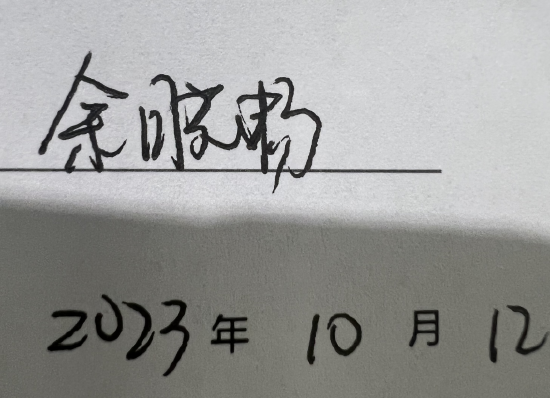 余晓畅
2023年10月12